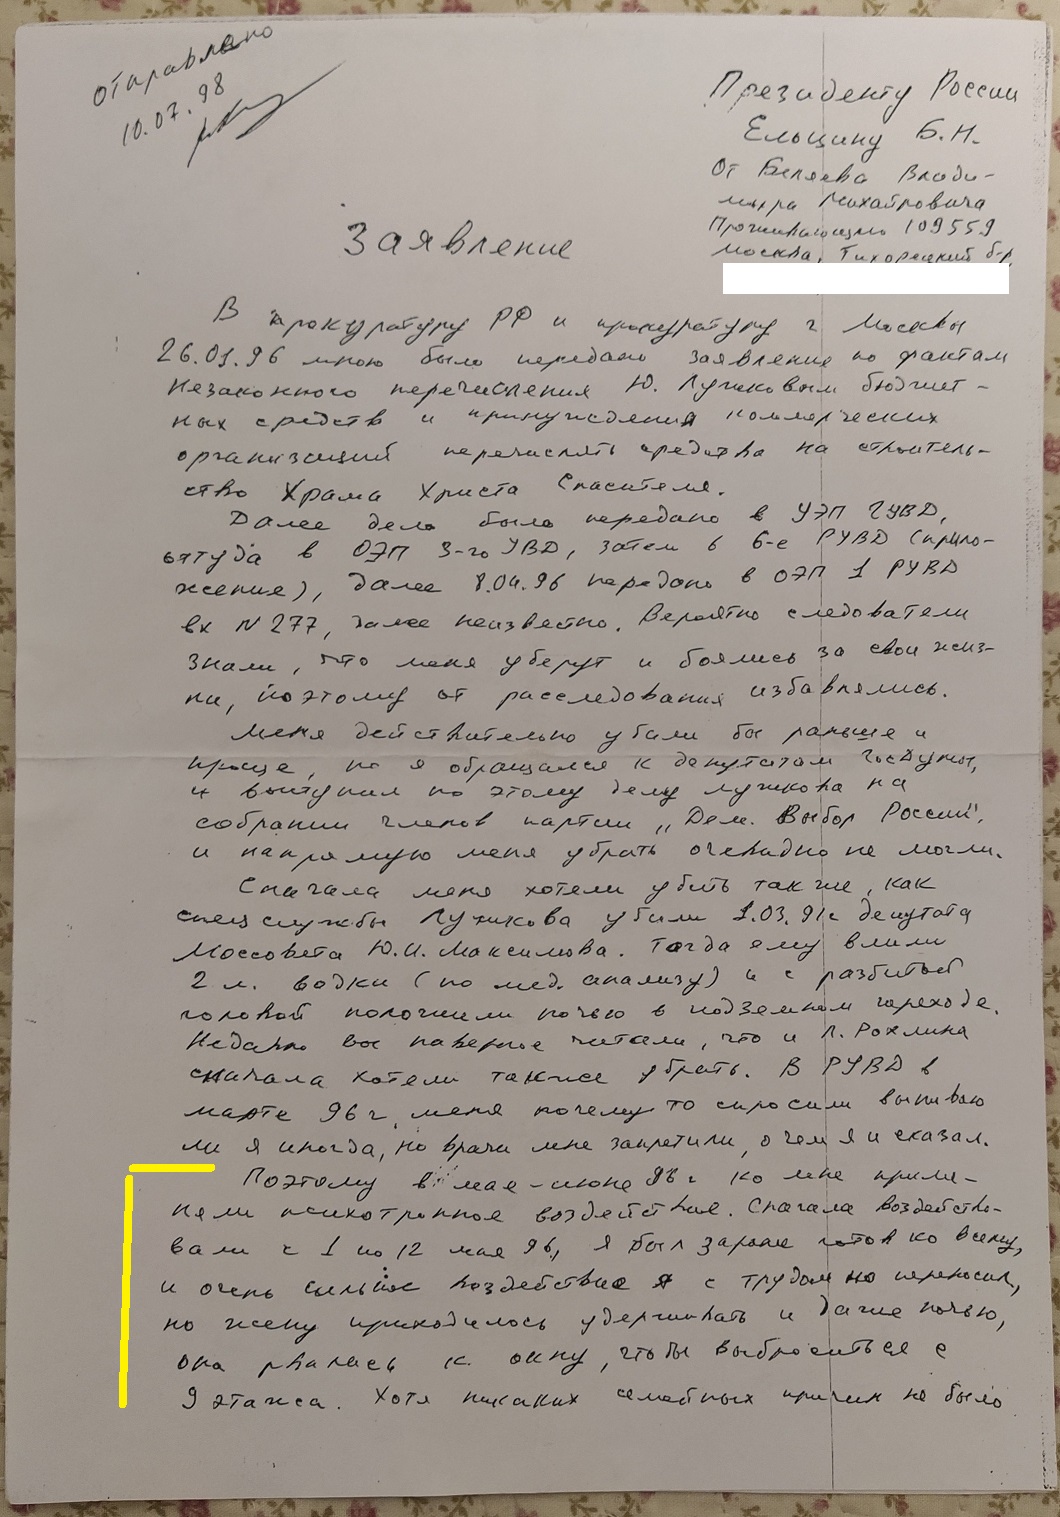 отправлено
10.07.98
Президенту России
Ельцину Б.Н.
От Беляева Влади-
мира Михайловича
Проживающего 109559
Москва, Тихорецкий б-р,
Заявление
В прокуратуру РФ и прокуратуру г Москвы
26.01.96 мною было передано заявление по фактам
незаконного перечисления Ю. Лужковым бюджет-
ных средств и принуждения коммерческих
организаций перечислять средства на строитель-
ство Храма Христа Спасителя.
Далее дело было передано в УЭП ГУВД,
оттуда в ОЭП 3-го УВД, затем в 6-е РУВД (прило-
жение), далее 8.04.96 передано в ОЭП 1 РУВД
вх N 277, далее неизвестно. Вероятно следователи
знали, что меня уберут и боялись за свои жиз-
ни, поэтому от расследования избавлялись.
Меня действительно убили бы раньше и
проще, но я обращался к депутатам ГосДумы,
и выступил по этому делу Лужкова на
собрании членов партии „Дем. Выбор России",
и напрямую меня убрать очевидно не могли.
Сначала меня хотели убить также, как
спецслужбы Лужкова убили 1.03.91г депутата
Моссовета Ю.И. Максимова. Тогда ему влили
2 л. водки (по мед. анализу) и с разбитой
головой положили ночью в подземном переходе.
Недавно вы наверное читали, что и Л. Рохлина
сначала хотели также убрать. В РУВД в
марте 96 г. меня почему то спросили выпиваю
ли я иногда, но врачи мне запретили, о чем я и сказал.
Поэтому в мае-июне 96 г ко мне приме-
няли психотропное воздействие. Сначала воздейство-
вали с 1 по 12 мая 96, я был заранее готов ко всему,
и очень сильное воздействие я с трудом но переносил,
но жену приходилось удерживать и даже ночью,
она рвалась к окну, чтобы выброситься с
9 этажа. Хотя никаких семейных причин не было